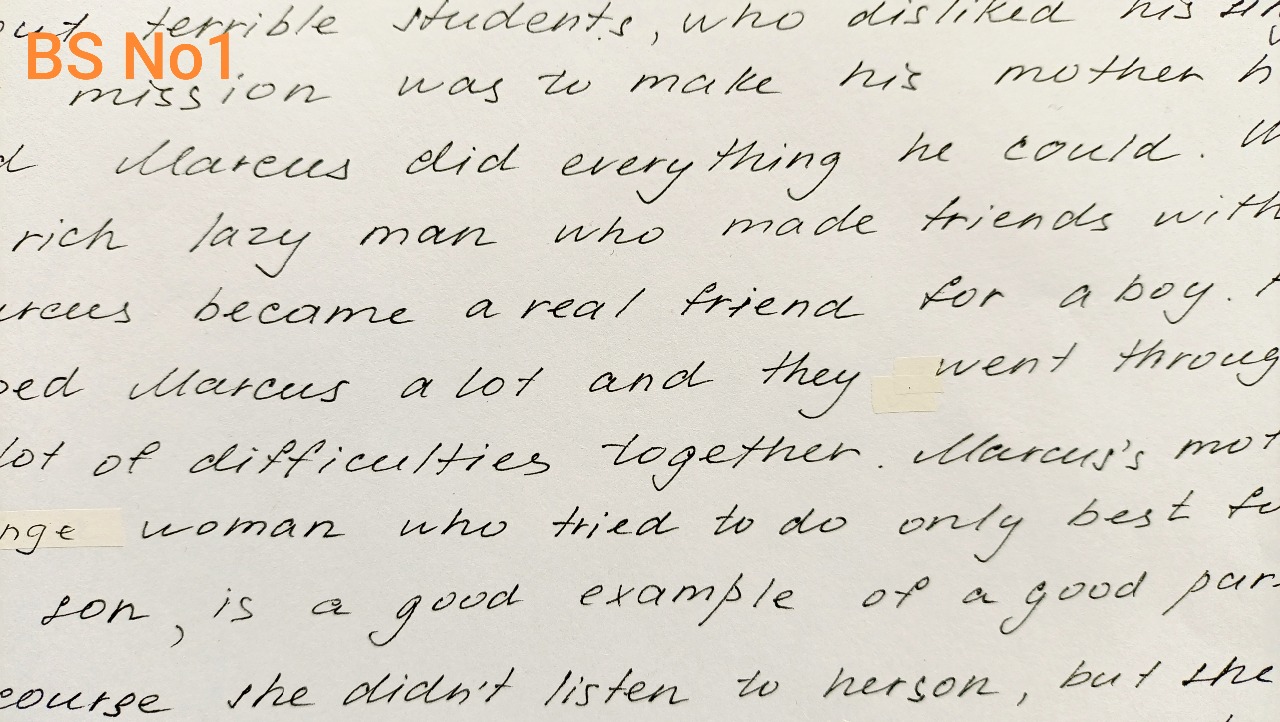 terrible students, who disliked his
BS No1
mission was to make his mother
Marcus did everything he could.
rich lazy man who made friends with
became a real friend for a boy.
Marcus a lot and they went throug
lot of difficulties together. Marcus's mot
nge woman who tried to do only best
son, is a good example of a good par-
course she didn't listen to herson, but she